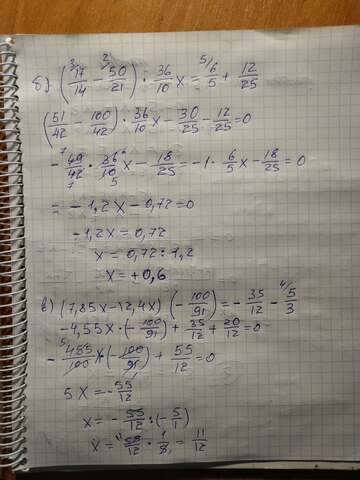 б) (17/14 - 50/21) · 36/10 x = 6/5 + 12/25
(51/42 - 100/42) · 36/10 x - 30/25 - 12/25 = 0
- 49/42 · 36/10 x - 18/25 = -1 · 6/5 x - 18/25 = 0
= - 1,2x - 0,72 = 0
-1,2x = 0,72
x = 0,72 : 1,2
x = + 0,6
в) (7,85x - 12,4x) (- 100/91) = - 35/12 - 5/3
-4,55x · (- 100/91) + 35/12 + 20/12 = 0
- 455/100 x · (- 100/91) + 55/12 = 0
5x = - 55/12
x = - 55/12 : (- 5/1)
x = 55/12 · 1/5 = 11/12